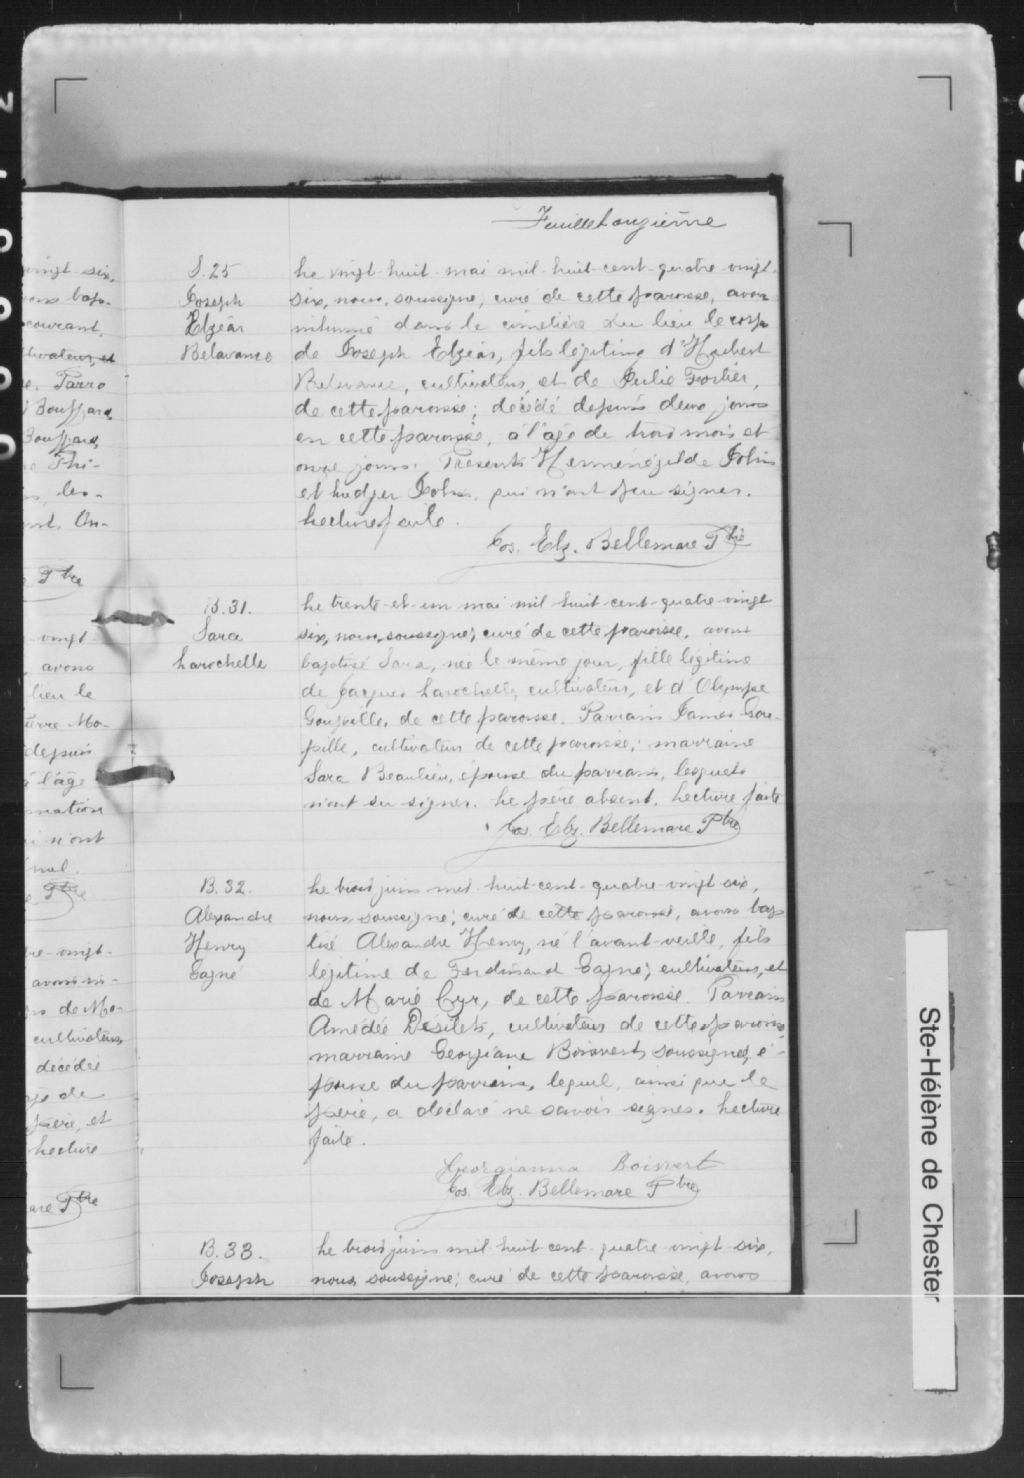 Feuillet onzième
vingt-six,
avons bap-
courant,
cultivateur, et
Parra
Bouffard,
Bouffard,
Phi-
les-
Ptre
vingt-
avons
lieu le
Pierre Mo-
depuis
à l'âge
mation
n'ont
Ptre
vingt-
avons in-
de Mo-
cultivateur,
décédée
de
père, et
Lecture
Ptre
S. 25
Joseph
Elzéar
Belavance
Le vingt-huit mai mil-huit-cent-quatre-vingt-
six, nous, soussigné, curé de cette paroisse, avons
inhumé dans le cimetière du lieu le corps
de Joseph Elzéar, fils légitime d'Hubert
Belavance, cultivateur, et de Julie Fortier,
de cette paroisse; décédé depuis deux jours
en cette paroisse, à l'âge de trois mois et
onze jours. Présents Herménégilde
et Ludger qui n'ont su signer.
Lecture faite.
Jos. Elz. Bellemare Ptre
B. 31.
Sara
Larochelle
Le trente-et-un mai mil-huit-cent-quatre-vingt
six, nous, soussigné, curé de cette paroisse, avons
baptisé Sara, née le même jour, fille légitime
de Jacques Larochelle, cultivateur, et d'Olympe
Goupille, de cette paroisse. Parrain James Gou-
pille, cultivateur de cette paroisse; marraine
Sara Beaulieu, épouse du parrain, lesquels
n'ont su signer. Le père absent. Lecture faite
Jos. Elz. Bellemare Ptre
B. 32.
Alexandre
Henry
Gagné
Le trois juin mil-huit-cent-quatre-vingt-six,
nous soussigné, curé de cette paroisse, avons bap
tisé Alexandre Henry, né l'avant-veille, fils
légitime de Ferdinand Gagné, cultivateur, et
de Marie Cyr, de cette paroisse. Parrain
Amédée Désilets, cultivateur de cette paroisse
marraine Georgiane Boisvert, soussignée, é-
pouse du parrain, lequel, ainsi que le
père, a déclaré ne savoir signer. Lecture
faite.
Georgianna Boisvert
Jos. Elz. Bellemare Ptre
B. 33.
Joseph
Le trois juin mil-huit-cent-quatre-vingt-six,
nous, soussigné, curé de cette paroisse, avons
Ste-Hélène de Chester